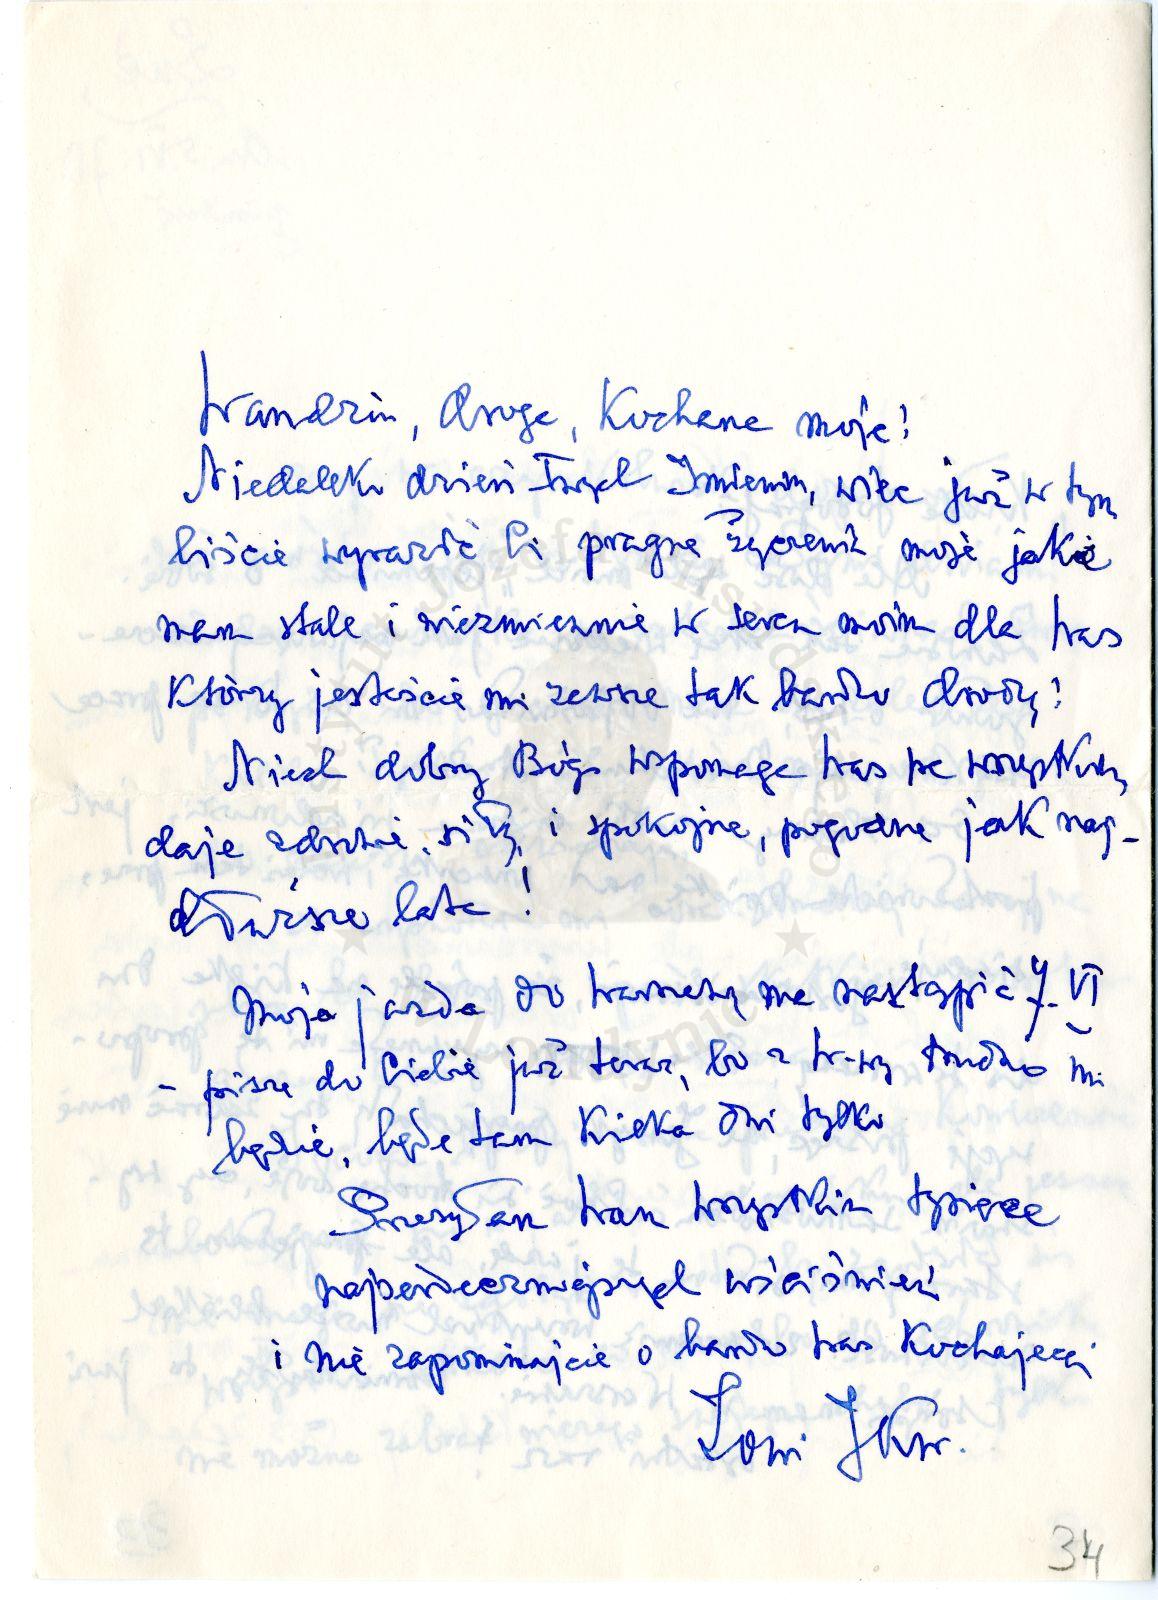 Wandziu, droga, Kochana moja!
Niedaleko dzień Twych Imienin, więc już w tym
liście wyrazić Ci pragnę życzenia moje jakie
mam stale i niezmiennie w sercu moim dla Was
którzy jesteście mi zawsze tak bardzo drodzy!
Niech dobry Bóg wspomaga Was we wszystkim,
daje zdrowie, siły, i spokojne, pogodne jak naj-
dłuższe lata!
Moja jazda do Warszawy ma nastąpić 7. VI
- piszę do Ciebie już teraz, bo z W-wy trudno mi
będzie, będę tam kilka dni tylko
Przesyłam Wam wszystkim tysiące
najserdeczniejszych uściśnień
i nie zapominajcie o bardzo Was Kochającej
34
Instytut Józefa Piłsudskiego
w Londynie